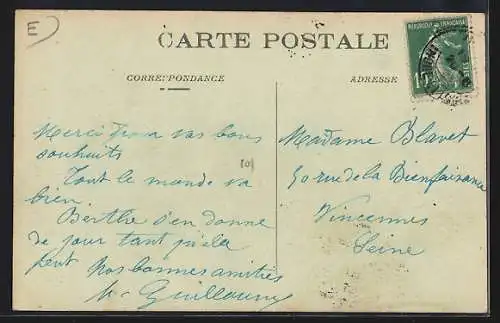 E
CARTE POSTALE
CORRESPONDANCE
ADRESSE
REPUBLIQUE FRANÇAISE
15
Merci pour vos bons
souhaits
Tout le monde va
bien.
Berthe s'en donne
de jour tant qu'ela
peut Nos bonnes amitiés
Guillouny
Madame Blavet
50 rue de la Bienfaisance
Vincennes
Seine